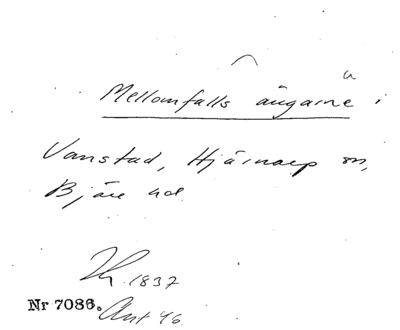 Mellomfalls ängarne i
Vanstad, Hjärnarp sn,
Bjäre hd
1837
Nr 7086. Ant 46